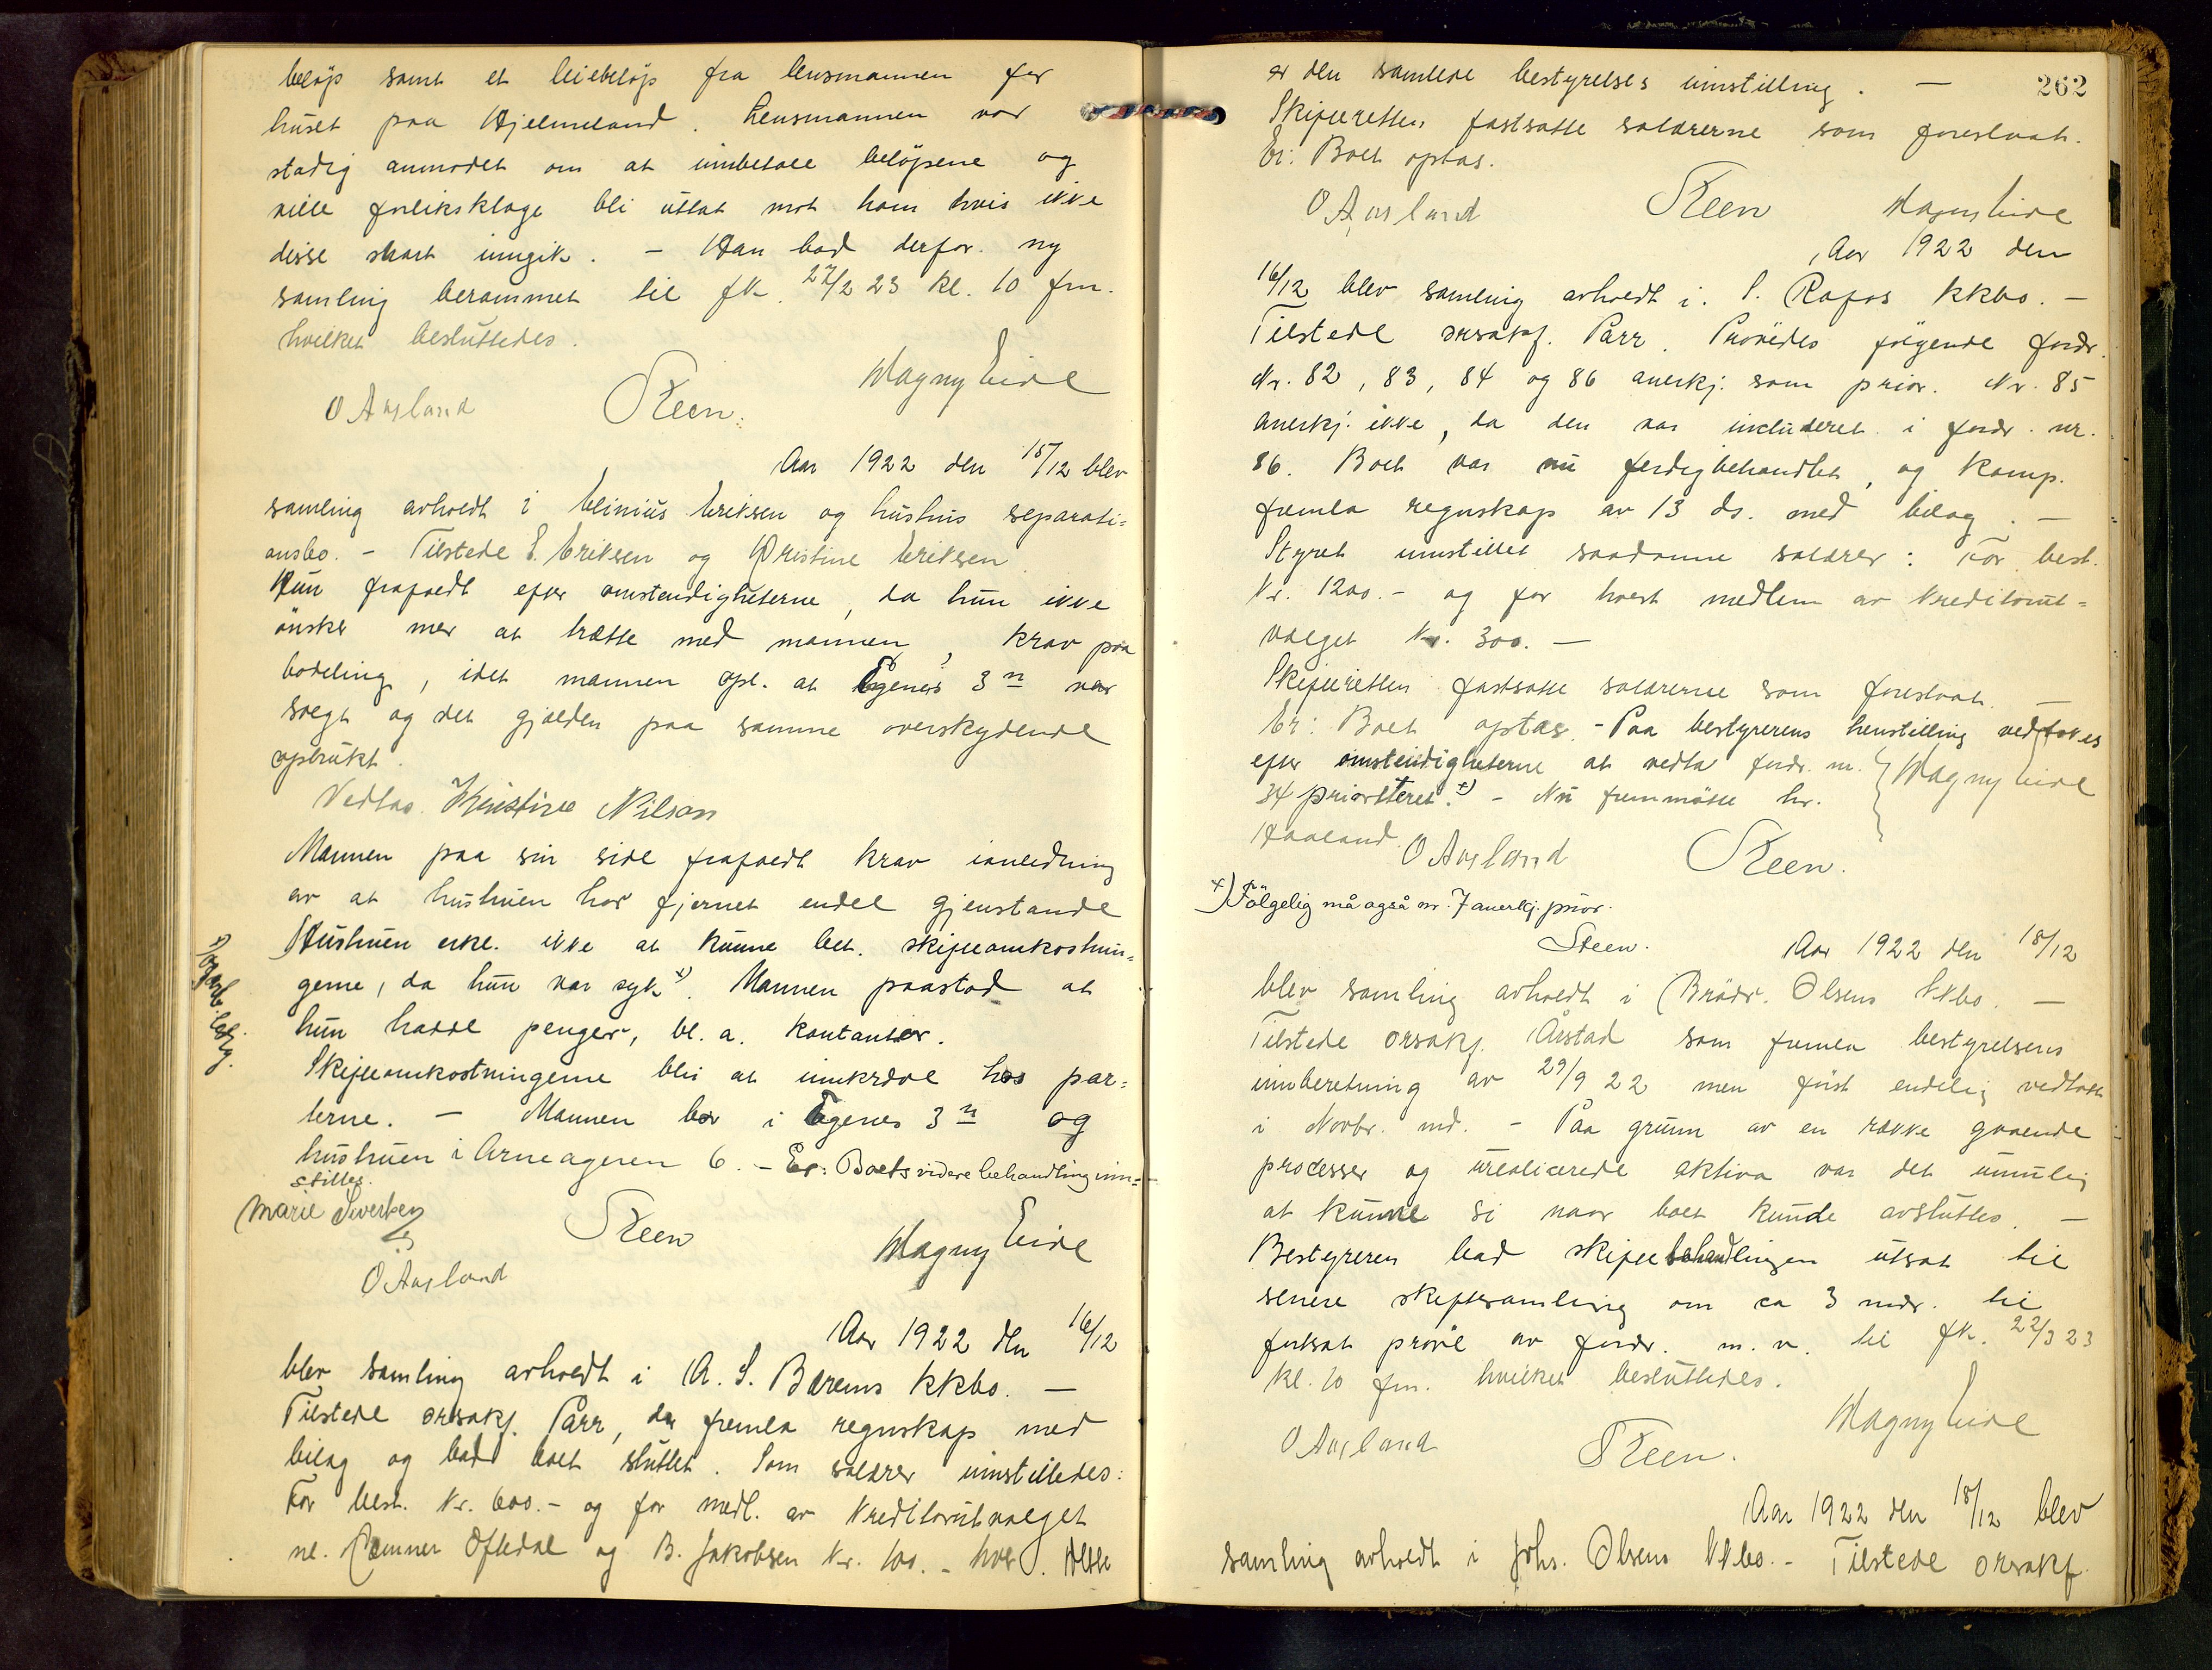 beløp samt et leiebeløp fra lensmannen for
huset paa Hjelmeland. Lensmannen var
stadig anmodet om at innbetale beløpene og
ville forliksklage bli uttat mot ham hvis ikke
disse skart inngik. – Han bad derfor ny
samling berammet til fk. 27/2 23 kl. 10 fm.
hvilket besluttedes.
O Aasland Steen. Magny Eide
Aar 1922 den 15/12 blev
samling avholdt i Elinius Eriksen og hustrus separati=
onsbo. – Tilstede E. Eriksen og Kristine Eriksen
Hun frafaldt efter omstendigheterne, da hun ikke
ønsker mer at trætte med mannen, krav paa
bodeling, idet mannen opl. at Egenes 3n var
solgt og det gjælden paa samme overskydende
opbrukt.
Vedtas. Kristine Nilsen
Mannen paa sin side frafaldt krav i anledning
av at hustruen har fjernet endel gjenstande
Hustruen erkl. ikke at kunne bet. skifteomkostnin=
gerne, da hun var syk x). Mannen paastod at
hun hadde penger, bl. a. kontanter.
Skifteomkostningerne blir at innkræve hos par=
terne. – Mannen bor i Egenes 3n og
hustruen i Arneageren 6. – Er: Boets videre behandling inn=
stilles.
Marie Sivertsen Steen Magny Eide
O Aasland
Aar 1922 den 16/12
blev samling avholdt i A. S. Bærems kkbo. –
Tilstede orsakf. Parr, der fremla regnskap med
bilag og bad boet sluttet. Som salærer innstilledes:
For best. Kr. 600.- og for medl. av kreditorutvalget
nl. Gunner Oftedal og B. Jakobsen Kr. 100.- hver. Dette
262
er den samlede bestyrelses innstilling. –
Skifteretten fastsatte salærerne som foreslaat.
Er: Boet optas.
O Aasland Steen Magny Eide
Aar 1922 den
16/12 blev samling avholdt i S. Rafos kkbo. –
Tilstede orsakf. Parr. Prøvedes følgende fordr.
Nr. 82, 83, 84 og 86 anerkj. som prior. Nr. 85
anerkj. ikke, da den var includeret i fordr. nr.
86. Boet var nu ferdigbehandlet, og komp.
fremla regnskap av 13 ds. med bilag. –
Styret innstillet saadanne salærer: For best.
Kr. 1200.- og for hvert medlem av kreditorut=
valget Kr. 300. –
Skifteretten fastsatte salærerne som foreslaat. –
Er: Boet optas. – Paa bestyrerens henstilling vedtokes
efter omstendigheterne at vedta fordr. nr. Magny Eide
34 prioriteret. x) – Nu fremmøtte hr.
Haaland. O Aasland Steen.
x) Følgelig må også nr. 7 anerkj. prior.
Steen. Aar 1922 den 18/12
blev samling avholdt i Brødr. Olsens kkbo. –
Tilstede orsakf. Årstad som fremla bestyrelsens
innberetning av 29/9 22 men først endelig vedtatt
i Novbr. md. – Paa grunn av en række gaaende
processer og urealiserede aktiva var det umulig
at kunne si naar boet kunde avsluttes. –
Bestyreren bad skiftebehandlingen utsat til
senere skiftesamling om ca 3 mdr. til
fortsat prøve av fordr. m. v. til fk. 22/3 23
kl. 10 fm. hvilket besluttedes.
O Aasland Steen. Magny Eide
Aar 1922 den 18/12 blev
samling avholdt i Johs. Olsens kkbo. – Tilstede orsakf.